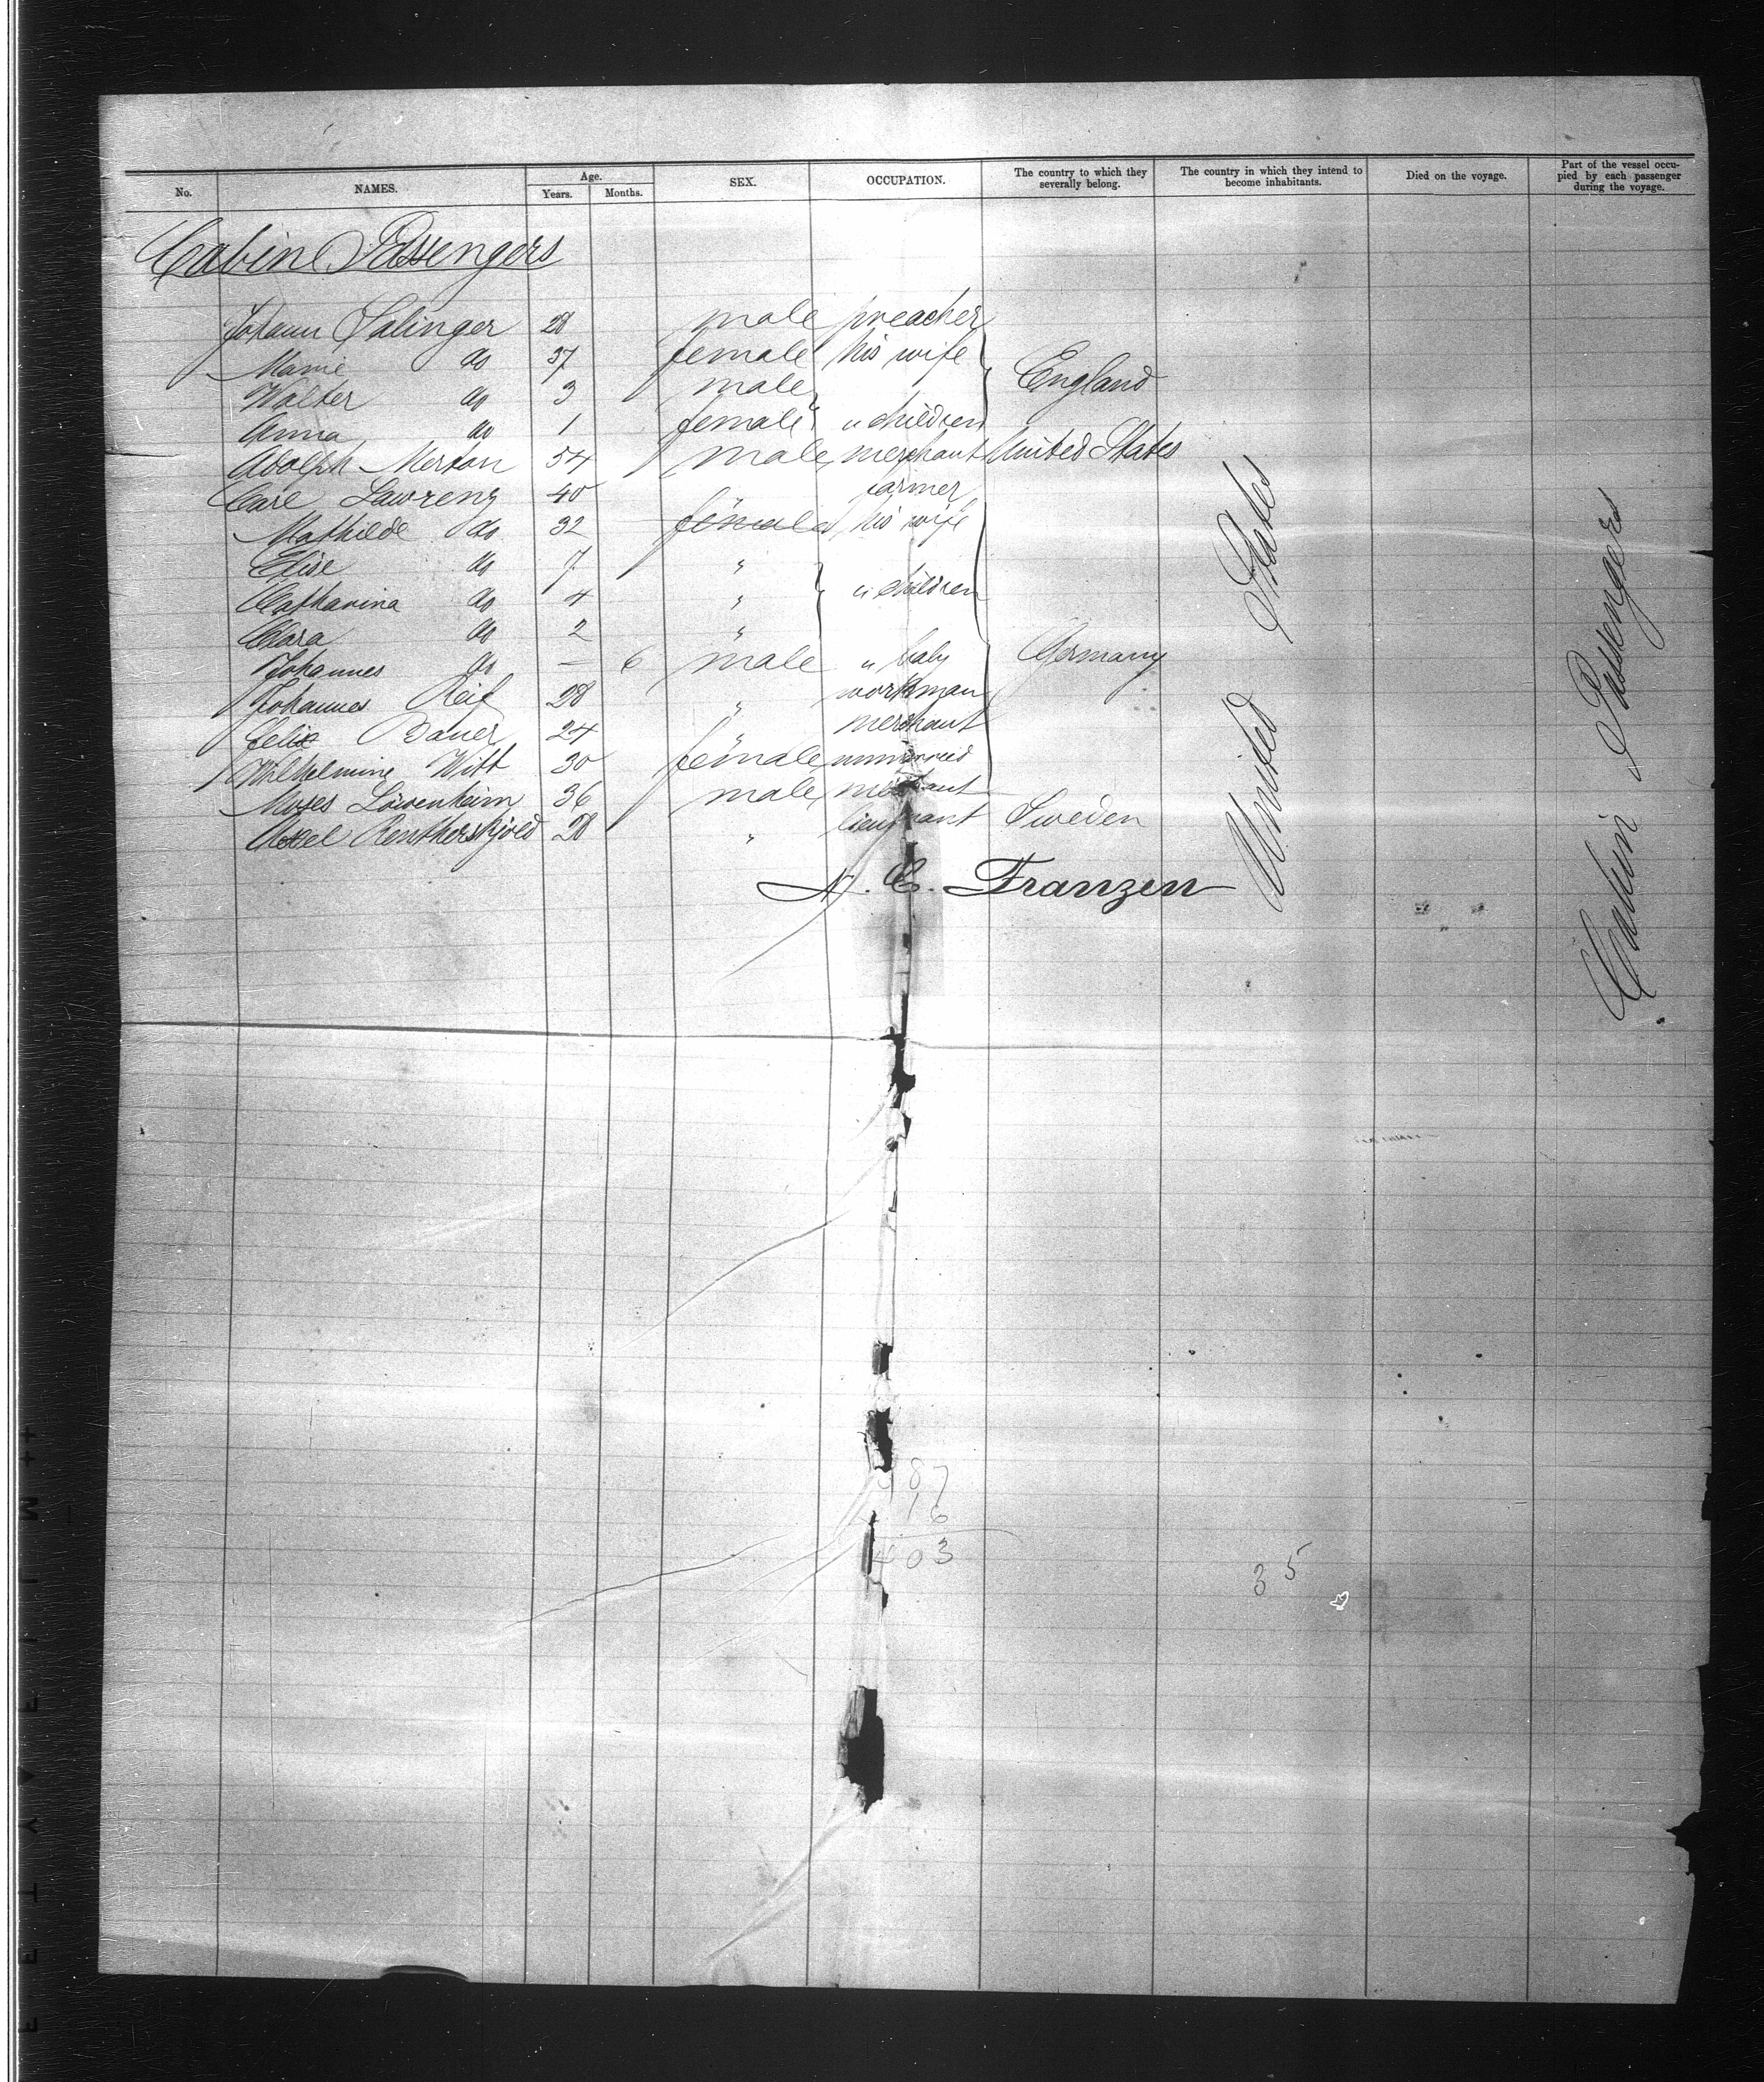 No. NAMES. Age. Years. Months. SEX. OCCUPATION. The country to which they severally belong. The country in which they intend to become inhabitants. Died on the voyage. Part of the vessel occupied by each passenger during the voyage.
Cabin Passengers
Johann Salinger 28 male preacher
Marie do 37 female his wife
Walter do 3 male England
Anna do 1 female " children
Adolph Merton 54 male merchant United States
Carl Lawrenz 40 " farmer
Mathilde do 32 female his wife
Elise do 7 "
Catharina do 4 " " children
Clara do 2 "
Johannes do — 6 male " baby Germany
Johannes Reif 28 " workman
Felix Bauer 24 " merchant
Wilhelmine Witt 30 female unmarried
Moses Löwenheim 36 male merchant
Axel 28 " lieutenant Sweden
United States
Cabin Passengers
A. C. Franzen
87
16
403
35